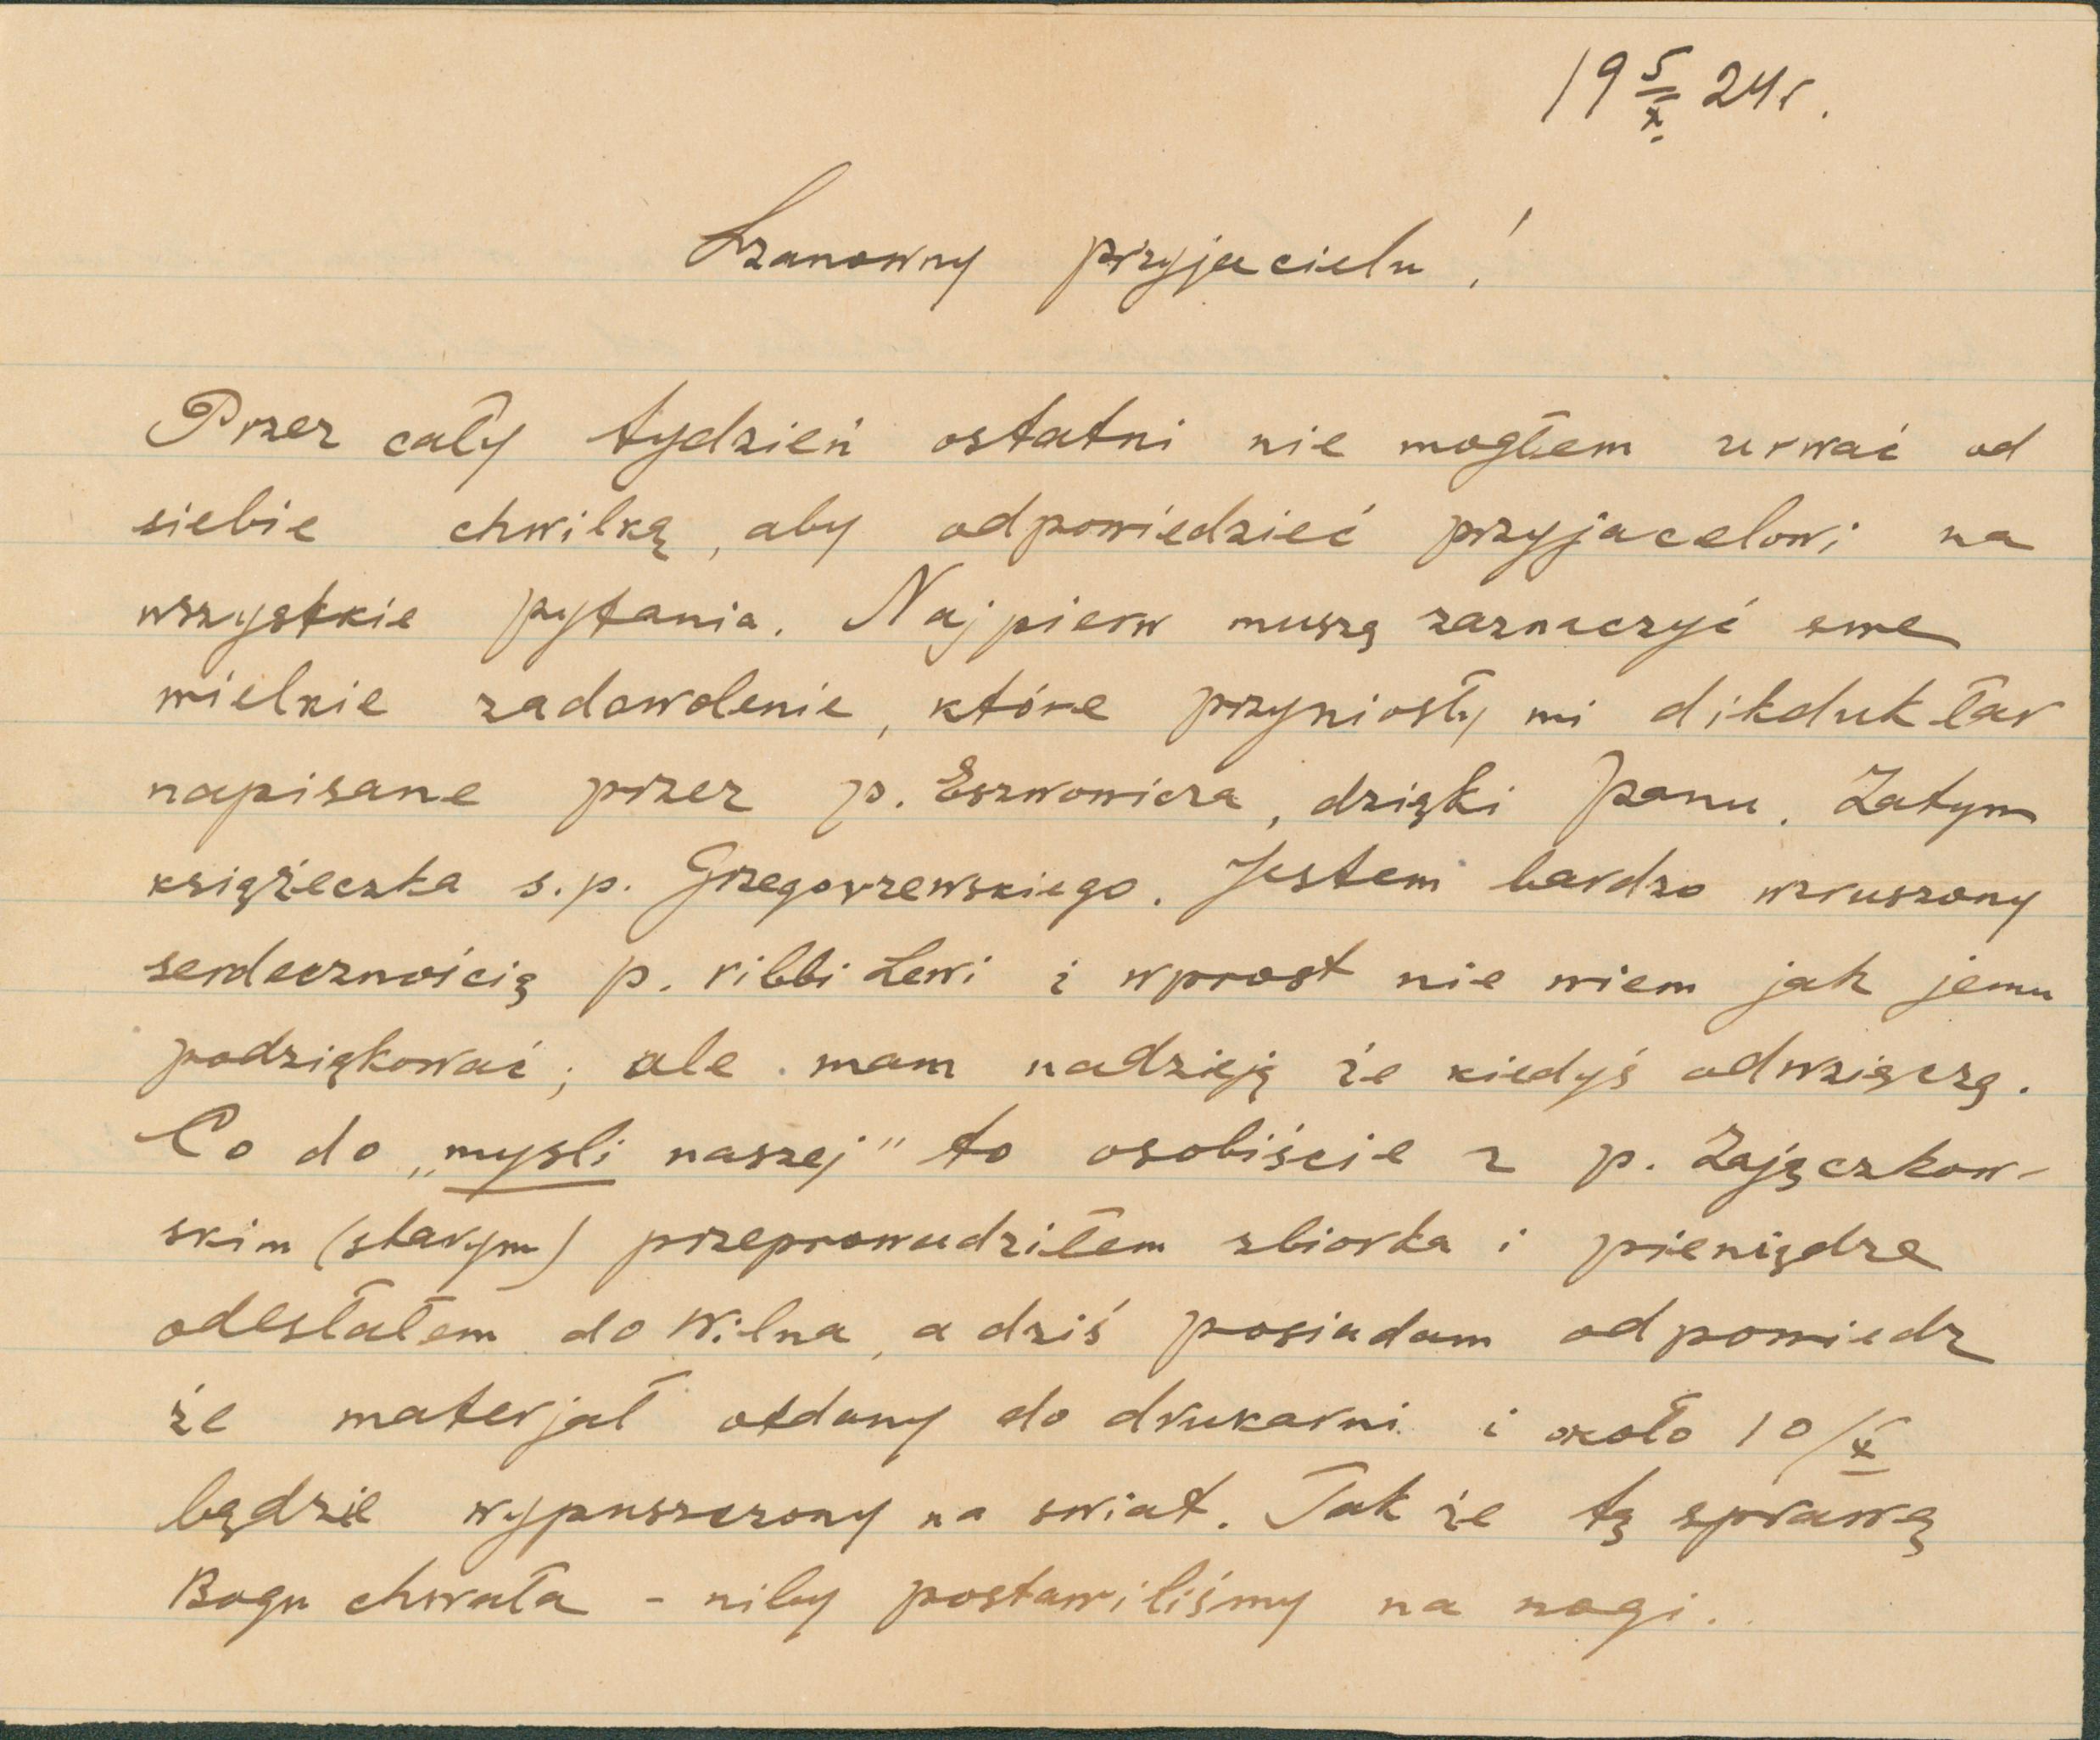 19 5/X 24r.
Szanowny przyjacielu!
Przez cały tydzień ostatni nie mogłem urwać od
siebie chwilkę, aby odpowiedzieć przyjacelowi na
wszystkie pytania. Najpierw muszę zaznaczyć swe
wielkie zadowolenie, które przyniosły mi dikduk łar
napisane przez p. Eszwowicza, dzięki panu. Zatym
książeczka s.p. Grzegorzewskiego. Jestem bardzo wzruszony
serdecznością p. ribbi Lewi i wprost nie wiem jak jemu
podziękować; ale mam nadzieję że kiedyś odwzięczę.
Co do „mysli naszej" to osobiście z p. Zajączkow-
skim (starym) przeprowadziłem zbiorka i pieniądze
odesłałem do Wilna, a dziś posiadam odpowiedz
że materjał oddany do drukarni i około 10/X
będzie wypuszczony na swiat. Tak że tę sprawę
Bogu chwała - niby postawiliśmy na nogi..